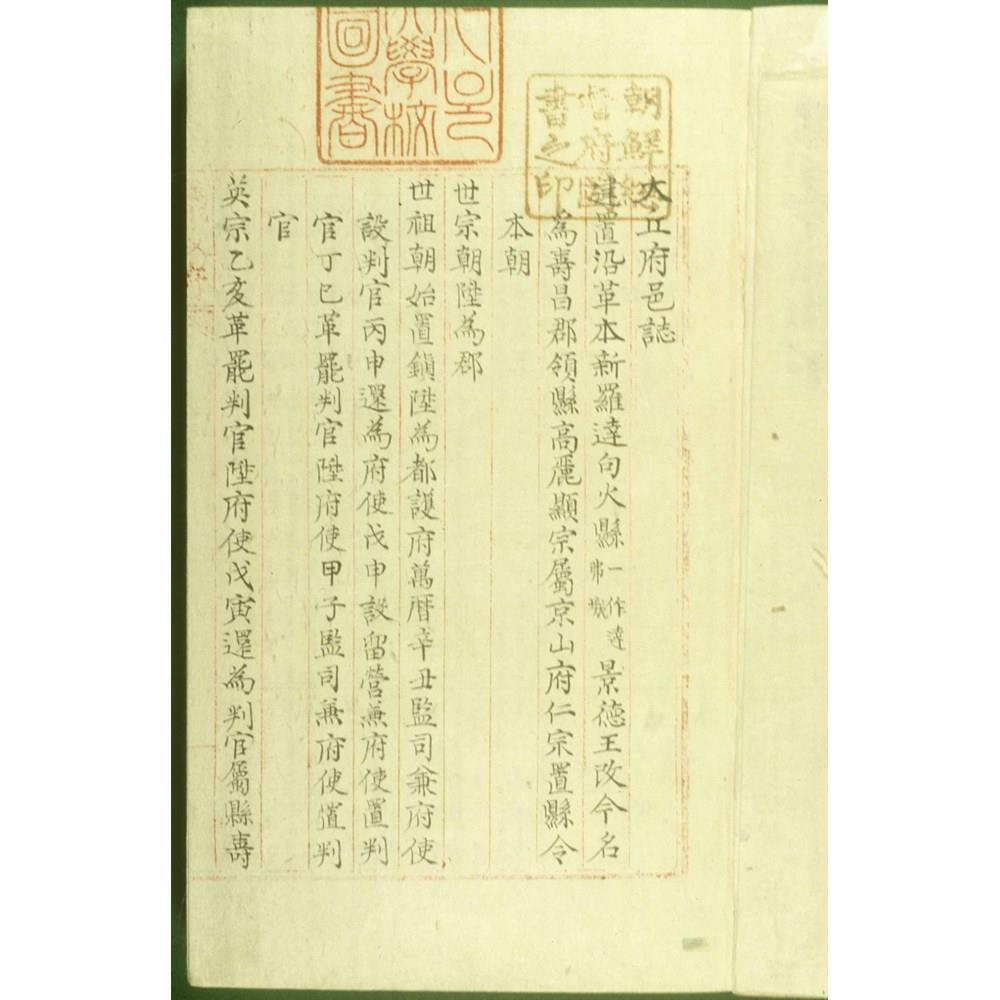 大丘府邑誌
建置沿革本新羅達句火縣一作達弗城景德王改今名
為壽昌郡領縣高麗顯宗屬京山府仁宗置縣令
本朝
世宗朝陞為郡
世祖朝始置鎭陞為都護府萬曆辛丑監司兼府使
設判官丙申還為府使戊申設留營兼府使置判
官丁巳革罷判官陞府使甲子監司兼府使置判
官
英宗乙亥革罷判官陞府使戊寅還為判官屬縣壽
朝鮮總
督府圖
書之印
大學校
圖書